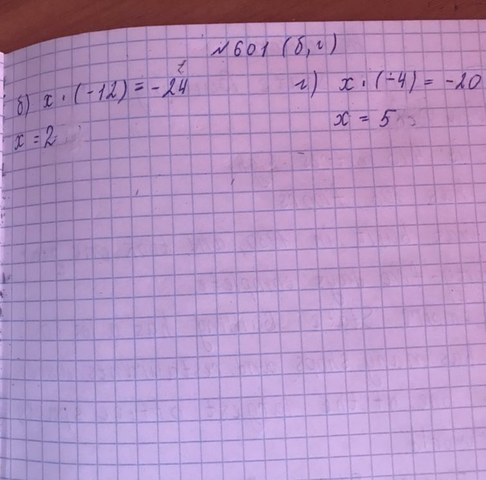 №601 (б, г)
б) x · (-12) = -24
x = 2
г) x · (-4) = -20
x = 5